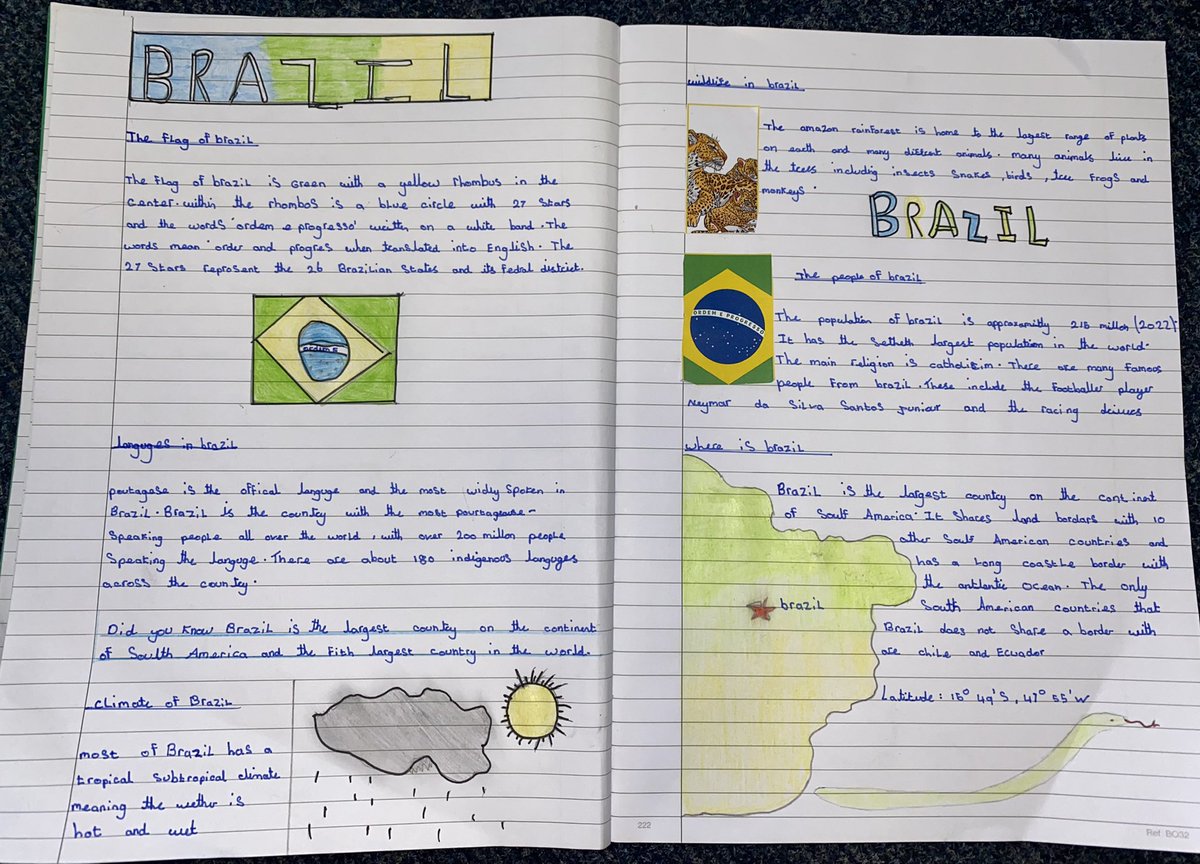 BRAZIL
The flag of brazil
The flag of brazil is Green with a yellow rhombus in the
center. within the rhombos is a blue circle with 27 Stars
and the words 'ordem e progresso' written on a white band. The
words mean 'order and progres when translated into English. The
27 Stars represent the 26 Brazilian States and its Fedral district.
ordem E
languges in brazil
poutagase is the offical languge and the most widly spoken in
Brazil. Brazil is the country with the most pourtageuse-
speaking people all over the world, with over 200 millon people
Speaking the languge. There are about 180 indigenous languges
across the country.
Did you know Brazil is the largest country on the continent
of South America and the fith largest country in the world.
climate of Brazil
most of Brazil has a
tropical subtropical climate
meaning the wether is
hot and wet
wildlife in brazil
The amazon rainforest is home to the lagest range of plants
on earth and many diffrent animals. many animals live in
the trees including insects snakes, birds, tree frogs and
monkeys.
BRAZIL
The people of brazil
ORDEM E PROGRESSO
The population of brazil is approxamitly 215 millon (2022)
It has the largest population in the world.
The main religion is catholicim. There are many famous
people from brazil. These include the footballer player
Neymar da Silva Santos juniour and the racing
where is brazil
Brazil is the largest country on the continent
of South America. It shares land bordars with 10
other South American countries and
has a long coastle border with
the antlantic ocean. The only
South American countries that
Brazil does not share a border with
are chile and Ecuador
brazil
Latitude: 15° 49'S, 47° 55'W
222
Ref BO32